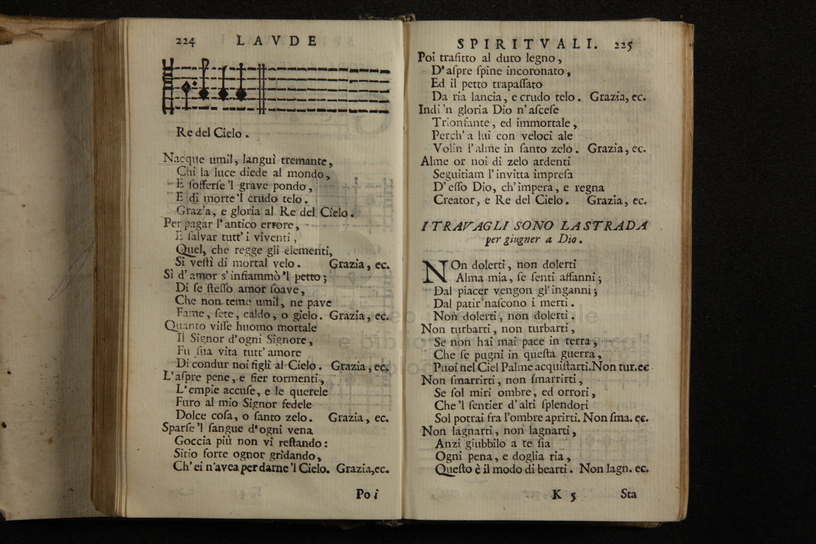 224 LAVDE
Re del Cielo.
Nacque umil, languì tremante,
Chi la luce diede al mondo,
E sofferse 'l grave pondo,
E di morte 'l crudo telo.
Grazia, e gloria al Re del Cielo.
Per pagar l'antico errore,
E salvar tutt' i viventi,
Quel, che regge gli elementi,
Si vestì di mortal velo. Grazia, ec.
Sì d'amor s'infiammò 'l petto;
Di se stesso amor soave,
Che non teme umil, ne pave
Fame, sete, caldo, o gielo. Grazia, ec.
Quanto visse huomo mortale
Il Signor d'ogni Signore,
Fu sua vita tutt' amore
Di condur noi figli al Cielo. Grazia, ec.
L'aspre pene, e fier tormenti,
L'empie accuse, e le querele
Furo al mio Signor fedele
Dolce cosa, o santo zelo. Grazia, ec.
Sparse 'l sangue d'ogni vena
Goccia più non vi restando:
Sitio forte ognor gridando,
Ch' ei n'avea per darne 'l Cielo. Grazia, ec.
Poi
SPIRITVALI. 225
Poi trafitto al duro legno,
D'aspre spine incoronato,
Ed il petto trapassato
Da ria lancia, e crudo telo. Grazia, ec.
Indi 'n gloria Dio n'ascese
Trionfante, ed immortale,
Perch' a lui con veloci ale
Volin l'alme in santo zelo. Grazia, ec.
Alme or noi di zelo ardenti
Seguitiam l'invitta impresa
D'esso Dio, ch'impera, e regna
Creator, e Re del Cielo. Grazia, ec.
I TRAVAGLI SONO LA STRADA
per giugner a Dio.
NOn dolerti, non dolerti
Alma mia, se senti affanni;
Dal piacer vengon gl'inganni;
Dal patir nascono i merti.
Non dolerti, non dolerti.
Non turbarti, non turbarti,
Se non hai mai pace in terra,
Che se pugni in questa guerra,
Puoi nel Ciel Palme acquistarti. Non tur. ec
Non smarrirti, non smarrirti,
Se sol miri ombre, ed orrori,
Che 'l sentier d'alti splendori
Sol potrai fra l'ombre aprirti. Non sma. ec.
Non lagnarti, non lagnarti,
Anzi giubbilo a te sia
Ogni pena, e doglia ria,
Questo è il modo di bearti. Non lagn. ec.
K 5 Sta